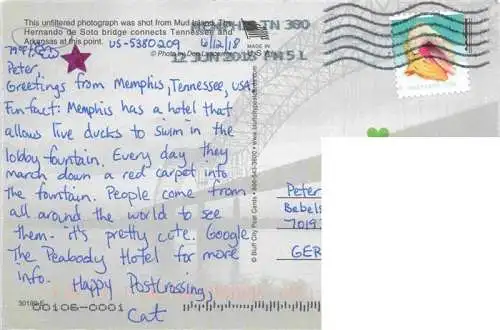 This unfiltered photograph was shot from Mud Island. The
Hernando de Soto bridge connects Tennessee and
Arkansas at this point.
US-5380209 6/12/18
MEMPHIS TN 380
12 JUN 2018 PM 5 L
MADE IN
U.S.A.
Peter,
Greetings from Memphis, Tennessee, USA.
Fun fact: Memphis has a hotel that
allows live ducks to swim in the
lobby fountain. Every day they
march down a red carpet into
the fountain. People come from
all around the world to see
them. it's pretty cute. Google
The Peabody Hotel for more
info. Happy Postcrossing,
Cat
© Bluff City Post Cards
Peter
Bebels
7019
GER
00106-0001